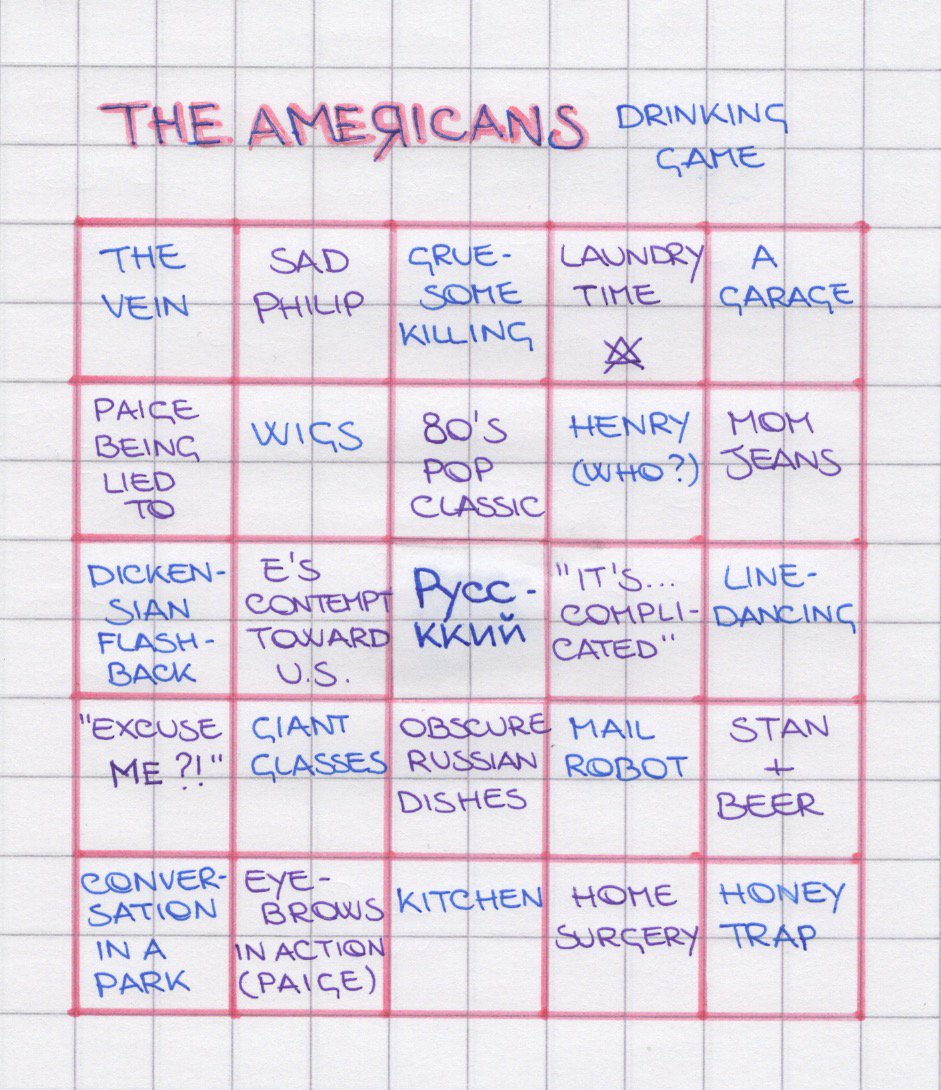 THE AMEЯICANS
DRINKING
GAME
THE
VEIN
SAD
PHILIP
GRUE-
SOME
KILLING
LAUNDRY
TIME
A
GARAGE
PAIGE
BEING
LIED
TO
WIGS
80'S
POP
CLASSIC
HENRY
(WHO?)
MOM
JEANS
DICKEN-
SIAN
FLASH-
BACK
E'S
CONTEMPT
TOWARD
U.S.
Русс-
ккий
"IT'S...
COMPLI-
CATED"
LINE-
DANCING
"EXCUSE
ME?!"
GIANT
GLASSES
OBSCURE
RUSSIAN
DISHES
MAIL
ROBOT
STAN
+
BEER
CONVER-
SATION
IN A
PARK
EYE-
BROWS
IN ACTION
(PAIGE)
KITCHEN
HOME
SURGERY
HONEY
TRAP